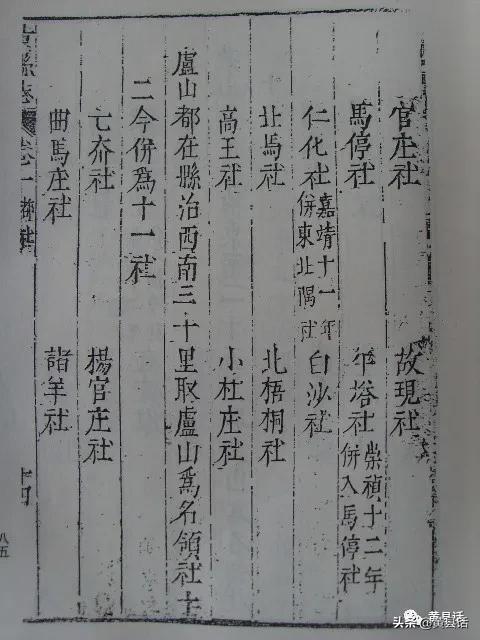 官庄社 故現社
馬停社 平塔社 崇禎十二年
併入馬停社
仁化社 嘉靖十一年
併東北隅社 白沙社
北馬社 北梧桐社
高王社 小杜庄社
盧山都在縣治西南三十里取盧山爲名領社十
二今併爲十一社
七夼社 楊官庄社
曲馬庄社 諸羊社
縣志 卷一
八五
黄县话
头条 @黄县话